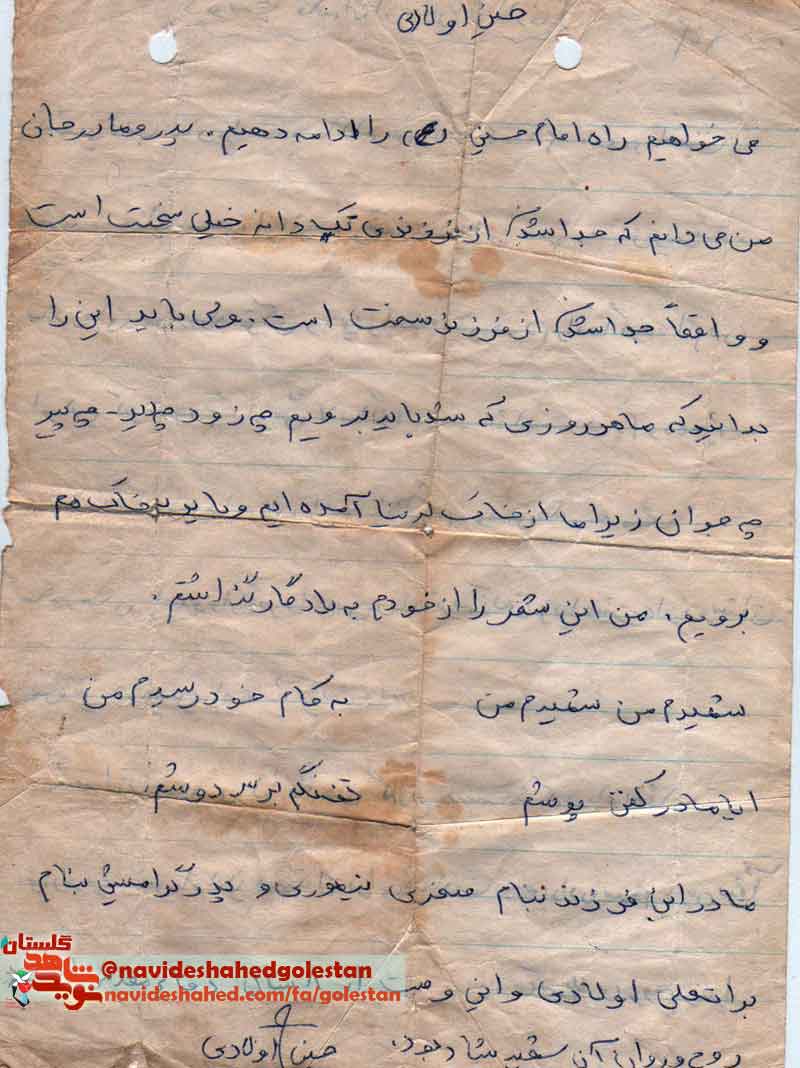 حسن اولادی
می خواهیم راه امام حسین (ع) را ادامه دهیم. پدر و مادر جان
من می دانم که جدا شدن از فرزندی تک دانه خیلی سخت است
و واقعاً جدا شدن از فرزند سخت است. ولی باید این را
بدانید که ما هر روزی که شد باید برویم چه زود چه دیر - چه پیر
چه جوان زیرا ما از خاک بدنیا آمده ایم و باید به خاک هم
برویم. من این شعر را از خودم به یادگار گذاشتم.
شهیدم من شهیدم من به کام خود رسیدم من
ایا مادر کفن پوشم تفنگم بر سر دوشم.
مادر این فرزند بنام صغری تیموری و پدر گرامیش بنام
براتعلی اولادی و این وصیت
روح و روان آن شهید شاد بود. حسن اولادی
نوید شاهد گلستان
@navideshahedgolestan
navideshahed.com/fa/golestan